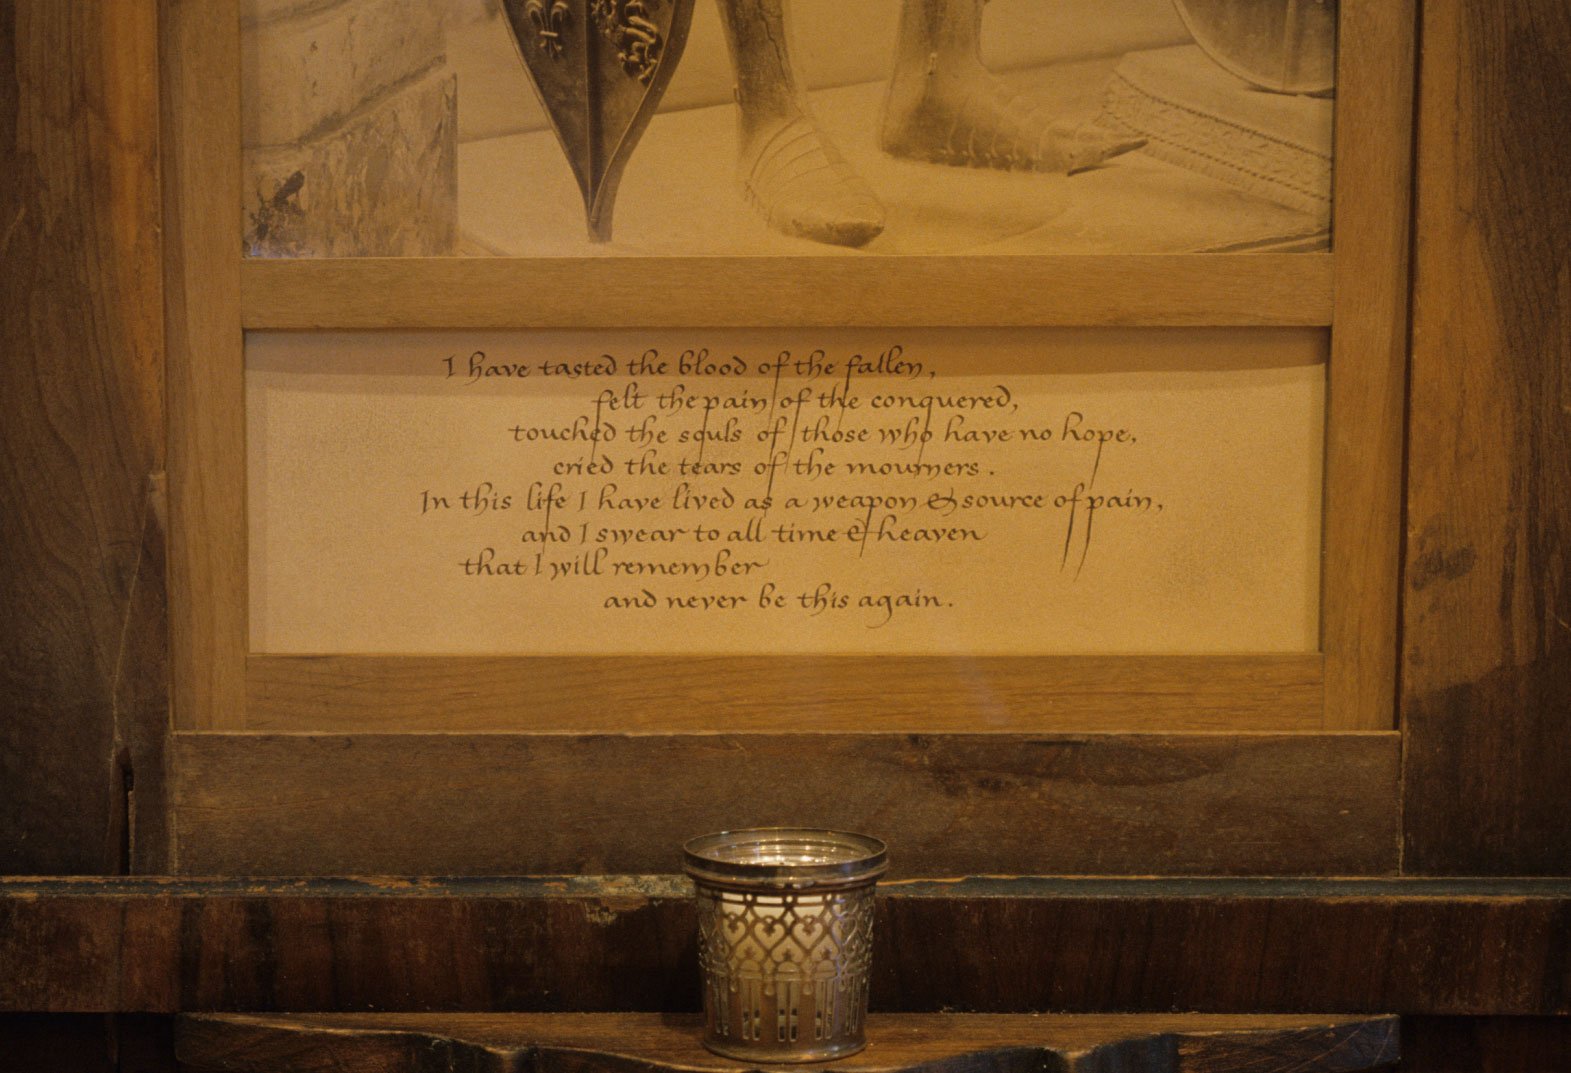 I have tasted the blood of the fallen,
felt the pain of the conquered,
touched the souls of those who have no hope,
cried the tears of the mourners.
In this life I have lived as a weapon & source of pain,
and I swear to all time & heaven
that I will remember
and never be this again.